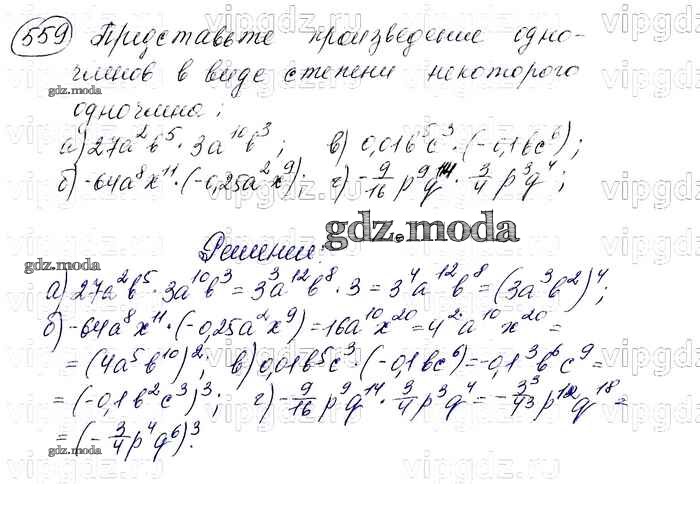 559 Представьте произведение одно-
членов в виде степени некоторого
gdz.moda
одночлена:
а) 27a²b⁵ · 3a¹⁰b³; в) 0,01b⁵c³ · (-0,1bc⁶);
б) -64a⁸x¹¹ · (-0,25a²x⁹); г) -9/16 p⁹q¹⁴ · 3/4 p³q⁴;
gdz.moda
Решение:
gdz.moda
а) 27a²b⁵ · 3a¹⁰b³ = 3³a¹²b⁸ · 3 = 3⁴a¹²b⁸ = (3a³b²)⁴;
б) -64a⁸x¹¹ · (-0,25a²x⁹) = 16a¹⁰x²⁰ = 4²a¹⁰x²⁰ =
= (4a⁵b¹⁰)²; в) 0,01b⁵c³ · (-0,1bc⁶) = -0,1³b⁶c⁹ =
= (-0,1b²c³)³; г) -9/16 p⁹q¹⁴ · 3/4 p³q⁴ = -3³/4³ p¹²q¹⁸ =
= (-3/4 p⁴q⁶)³.
gdz.moda
gdz.moda
vipgdz.ru